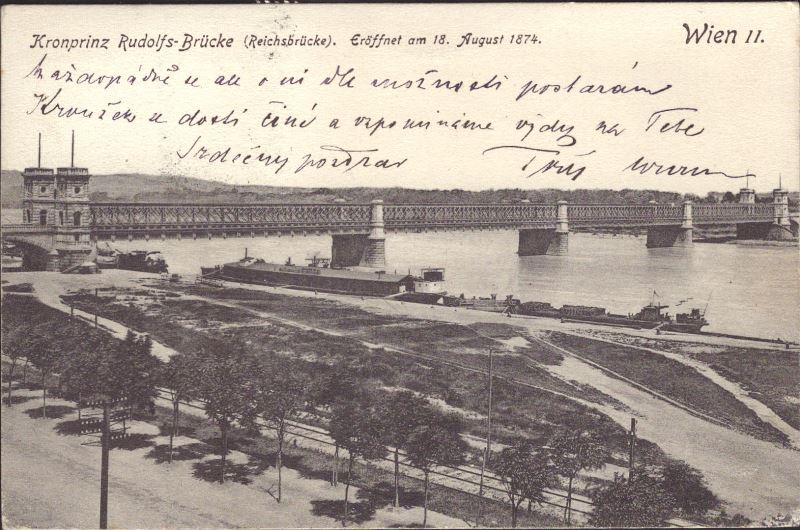 Kronprinz Rudolfs-Brücke (Reichsbrücke). Eröffnet am 18. August 1874.
Wien II.
každopádně se ale o ni dle možnosti postarám
Kroužek se dosti činí a vzpomínáme vždy na Tebe
Srdečný pozdrav Tvůj